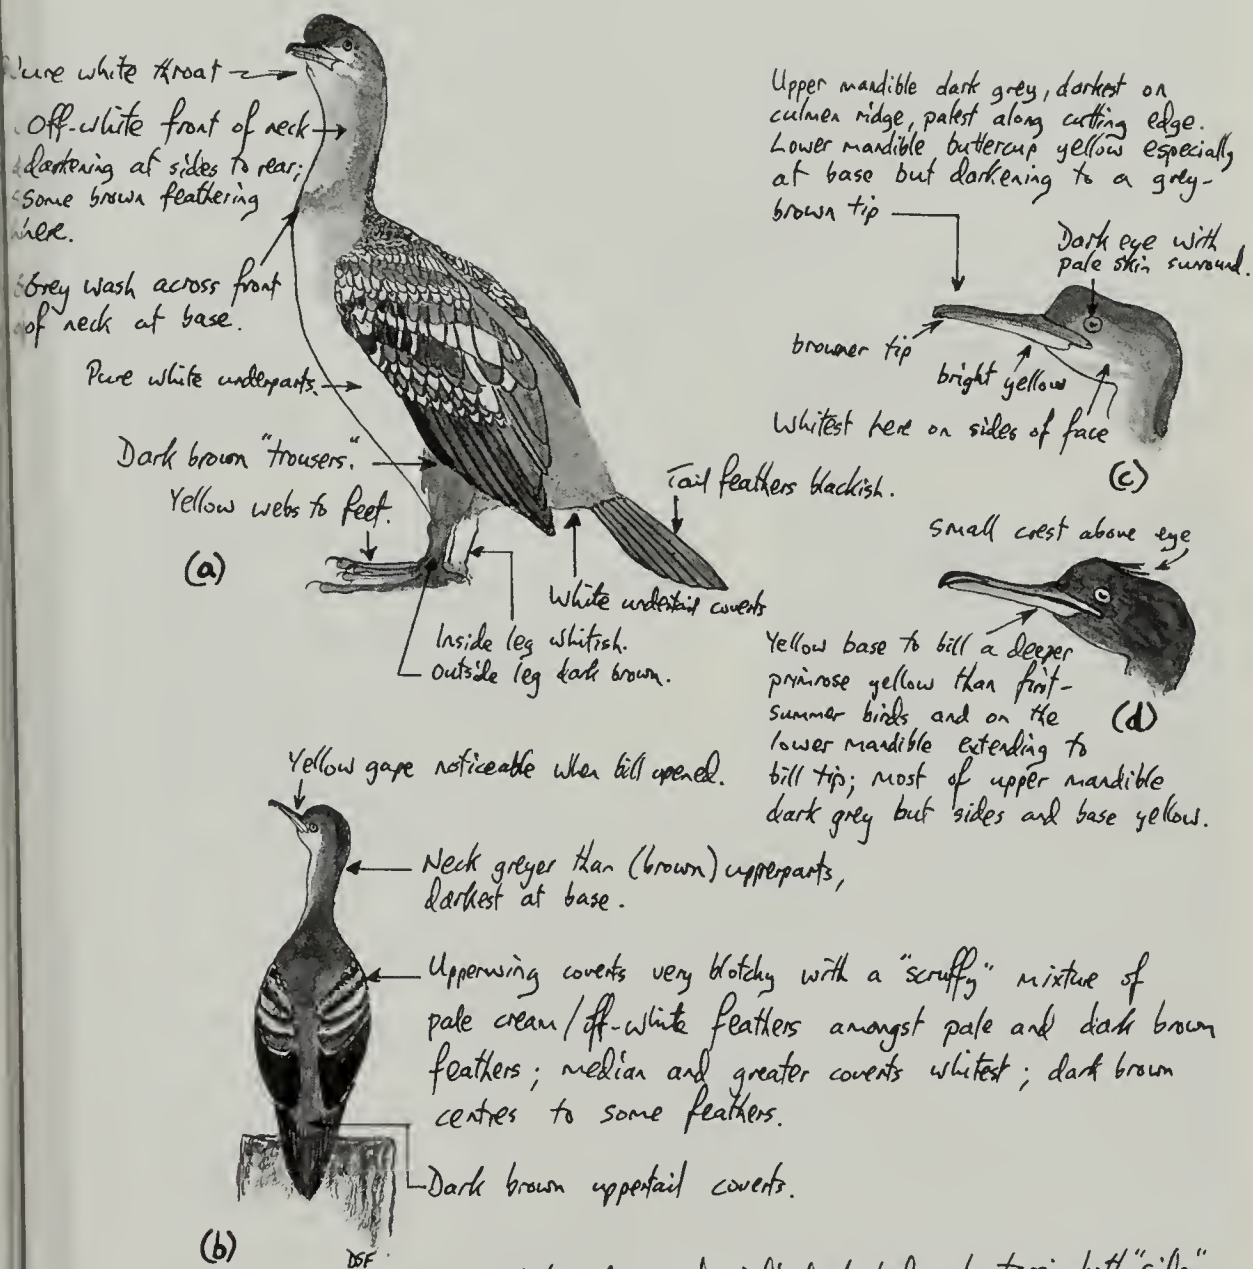 Pure white throat
Off-white front of neck
darkening at sides to rear;
some brown feathering
here.
Grey wash across front
of neck at base.
Pure white underparts.
Dark brown "trousers."
Yellow webs to feet.
(a)
Tail feathers blackish.
White undertail coverts
Inside leg whitish.
Outside leg dark brown.
Upper mandible dark grey, darkest on
culmen ridge, palest along cutting edge.
Lower mandible buttercup yellow especially
at base but darkening to a grey-
brown tip
Dark eye with
pale skin surround.
browner tip
bright yellow
Whitest here on sides of face
(c)
Small crest above eye
Yellow base to bill a deeper
primrose yellow than first-
summer birds and on the
lower mandible extending to
bill tip; most of upper mandible
dark grey but sides and base yellow.
(d)
Yellow gape noticeable when bill opened.
Neck greyer than (brown) upperparts,
darkest at base.
Upperwing coverts very blotchy with a "scruffy" mixture of
pale cream/off-white feathers amongst pale and dark brown
feathers; median and greater coverts whitest; dark brown
centres to some feathers.
Dark brown uppertail coverts.
(b)
DSF